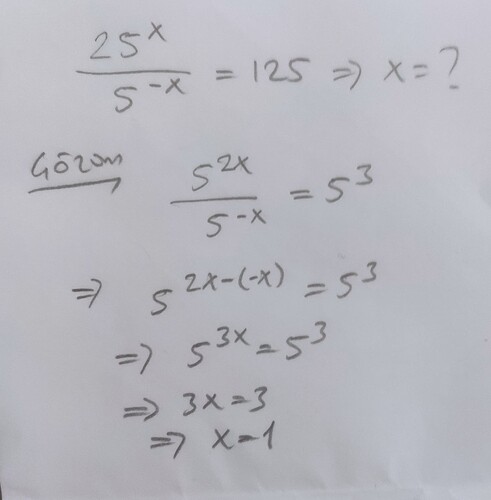 25^x / 5^-x = 125 ⇒ x = ?
Çözüm
5^2x / 5^-x = 5^3
⇒ 5^2x-(-x) = 5^3
⇒ 5^3x = 5^3
⇒ 3x = 3
⇒ x = 1